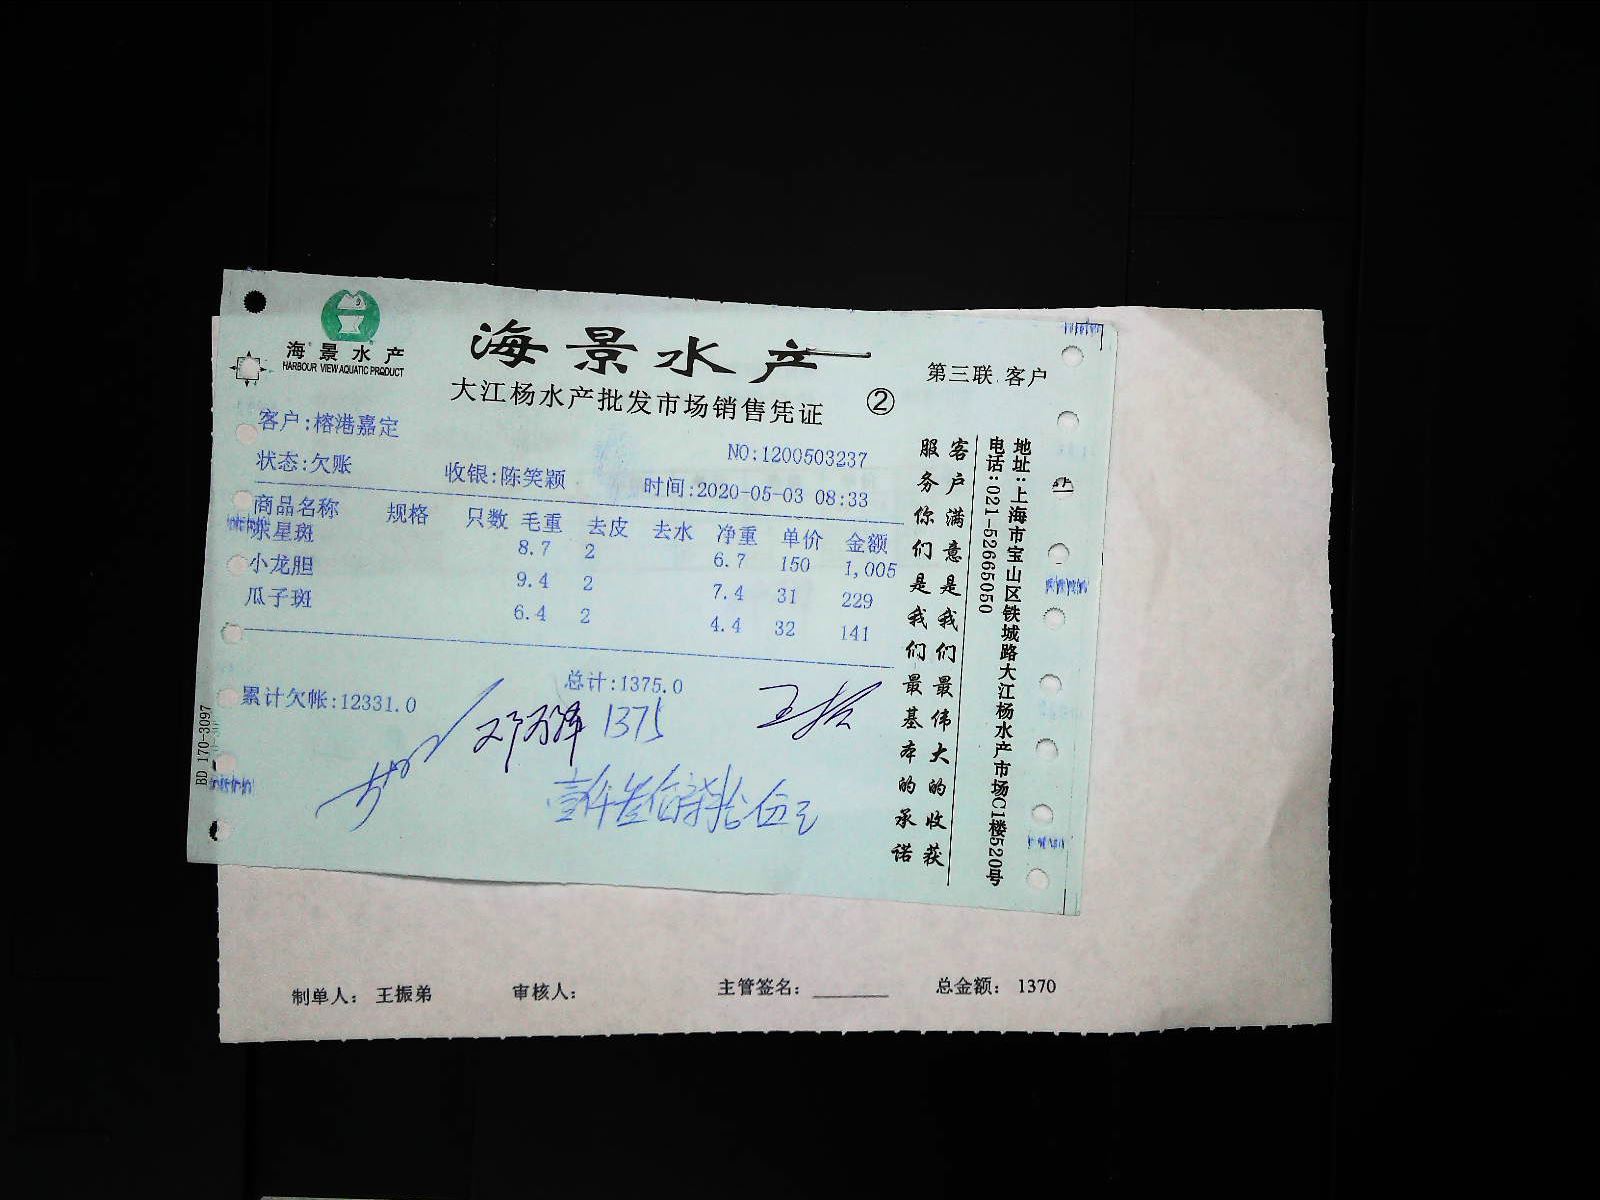 海景水产
HARBOUR VIEW AQUATIC PRODUCT
海景水产
大江杨水产批发市场销售凭证
②
第三联 客户
客户:榕港嘉定
NO:1200503237
状态:欠账 收银:陈笑颖 时间:2020-05-03 08:33
商品名称 规格 只数 毛重 去皮 去水 净重 单价 金额
东星斑 8.7 2 6.7 150 1,005
小龙胆 9.4 2 7.4 31 229
瓜子斑 6.4 2 4.4 32 141
总计:1375.0
累计欠帐:12331.0
1375
壹仟叁佰柒拾伍元
客户满意是我们最伟大的收获
服务你们是我们最基本的承诺
地址:上海市宝山区铁城路大江杨水产市场C1楼520号
电话:021-52665050
BD 170-3097
制单人: 王振弟 审核人: 主管签名: 总金额: 1370